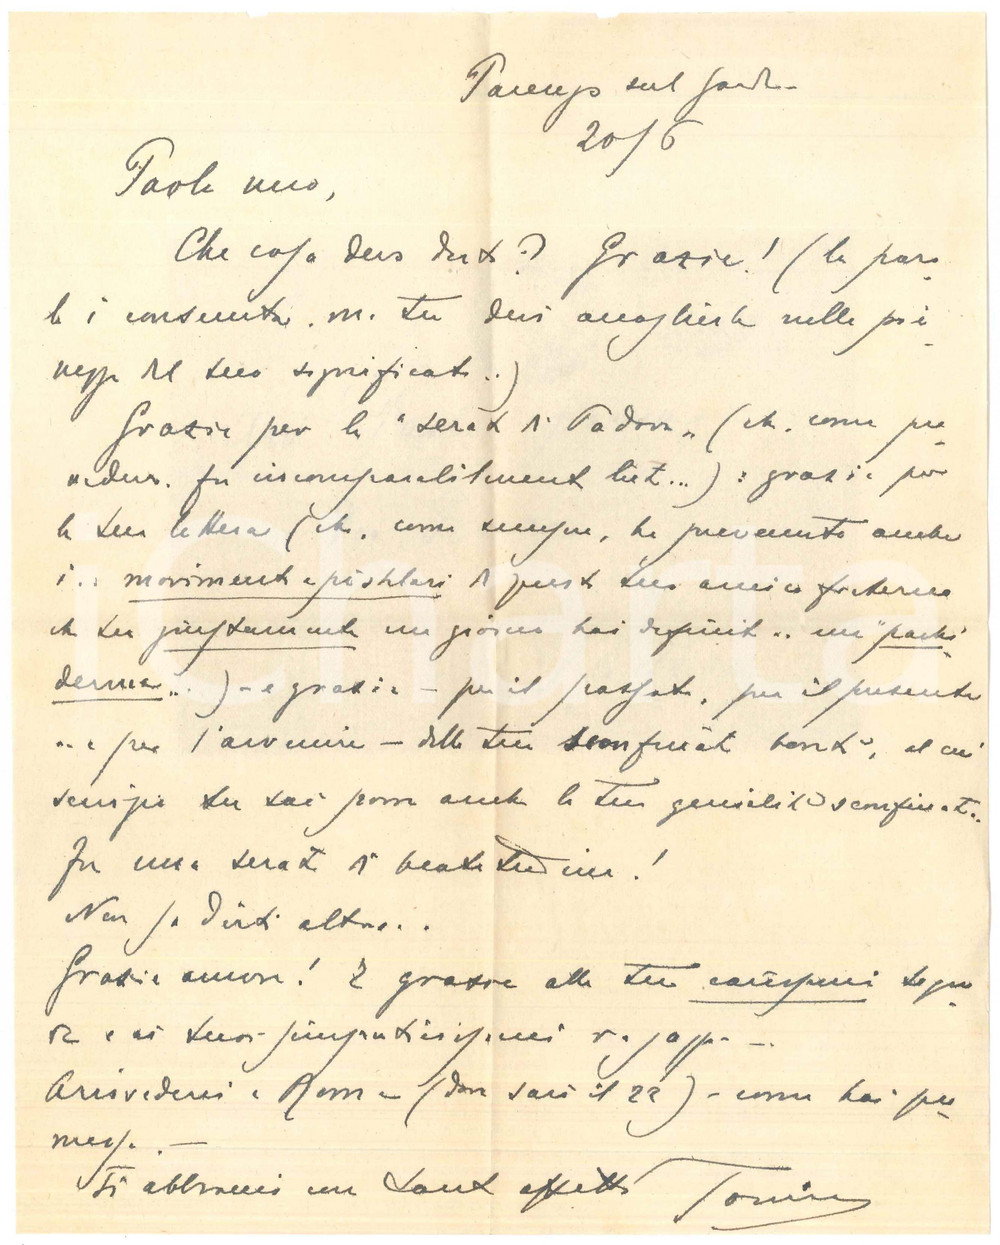 sul Garda
20/6
Paolo mio,
Che cosa devo dirti? Grazie! (la paro-
la è consunta, ma tu devi accoglierla nella pie-
nezza del suo significato..)
Grazie per la "serata di Padova" (che, come pre-
vedevo, fu incomparabilmente lieta...): grazie per
la tua lettera (che, come sempre, ha prevenuto anche
i.. movimenti epistolari di questo tuo amico fraterno
che tu giustamente un giorno hai definito.. un "pachi-
derma"..) - e grazie - per il passato, per il presente
.. e per l'avvenire - della tua sconfinata bontà, al cui
servizio tu sai porre anche la tua genialità sconfinata..
Fu una serata di beatitudine!
Non so dirti altro..
Grazie ancora! E grazie alla tua carissima signo-
ra e ai tuoi simpaticissimi ragazzi -.
Arrivederci a Roma - (dove sarò il 22) - come hai pro-
messo. -
Ti abbraccio con tanto affetto Tonino
iCharta